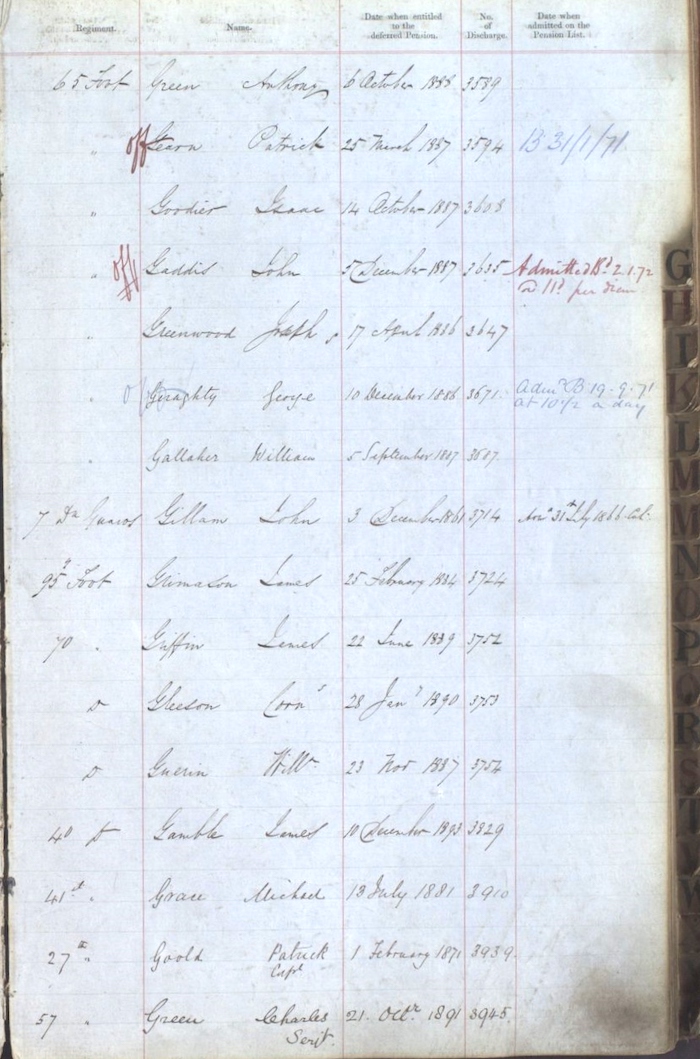 Regiment. Name. Date when entitled to the deferred Pension. No. of Discharge. Date when admitted on the Pension List.
65 Foot Green Anthony 6 October 1888 3589
" off Gearn Patrick 25 March 1887 3594 B 31/1/71
" Goodier Isaac 14 October 1887 3608
" off Gaddis John 5 December 1887 3635 Admitted Bd 2.1.72
at 11d per diem
" Greenwood Joseph 17 April 1886 3647
" Geraghty George 10 December 1886 3671 Admd B 19.9.71
at 10 1/2 a day
" Gallaher William 5 September 1887
7 Dn Guards Gillam John 3 December 1861 3714 31st July 1866
95 Foot Grimason James 25 February 1884 3724
70 " Griffin James 22 June 1889 3752
Do Gleeson Corns 28 Jany 1890 3753
Do Guerin Willm 23 Nov 1887 3754
40 Do Gamble James 10 December 1893 3829
41st " Grace Michael 13 July 1881 3910
27th " Goold Patrick 1 February 1871 3939
Corpl
57 " Green Charles 21 Octr 1891 3945
Serjt
G
H
I
K
L
M
M
N
O
P
R
S
T